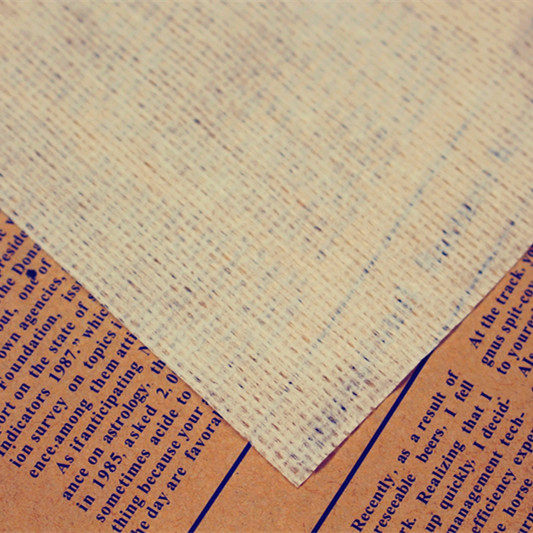 reside
the Don
out, one of
own agencies,
Foundation, iss
ort on the state of
indicators 1987," whic
ion survey on topics
ence among them atti
As if anticipating N
ance on astrology, th
in 1985, asked 2,0
sometimes acide to
thing because your
he day are favora
Recently, as a result of
reseeable beers, I fell
rk. Realizing that I
up quickly, I decid-
management tech-
efficiency expe
he horse
At the track, y
gnus spit-co
to yours
Als